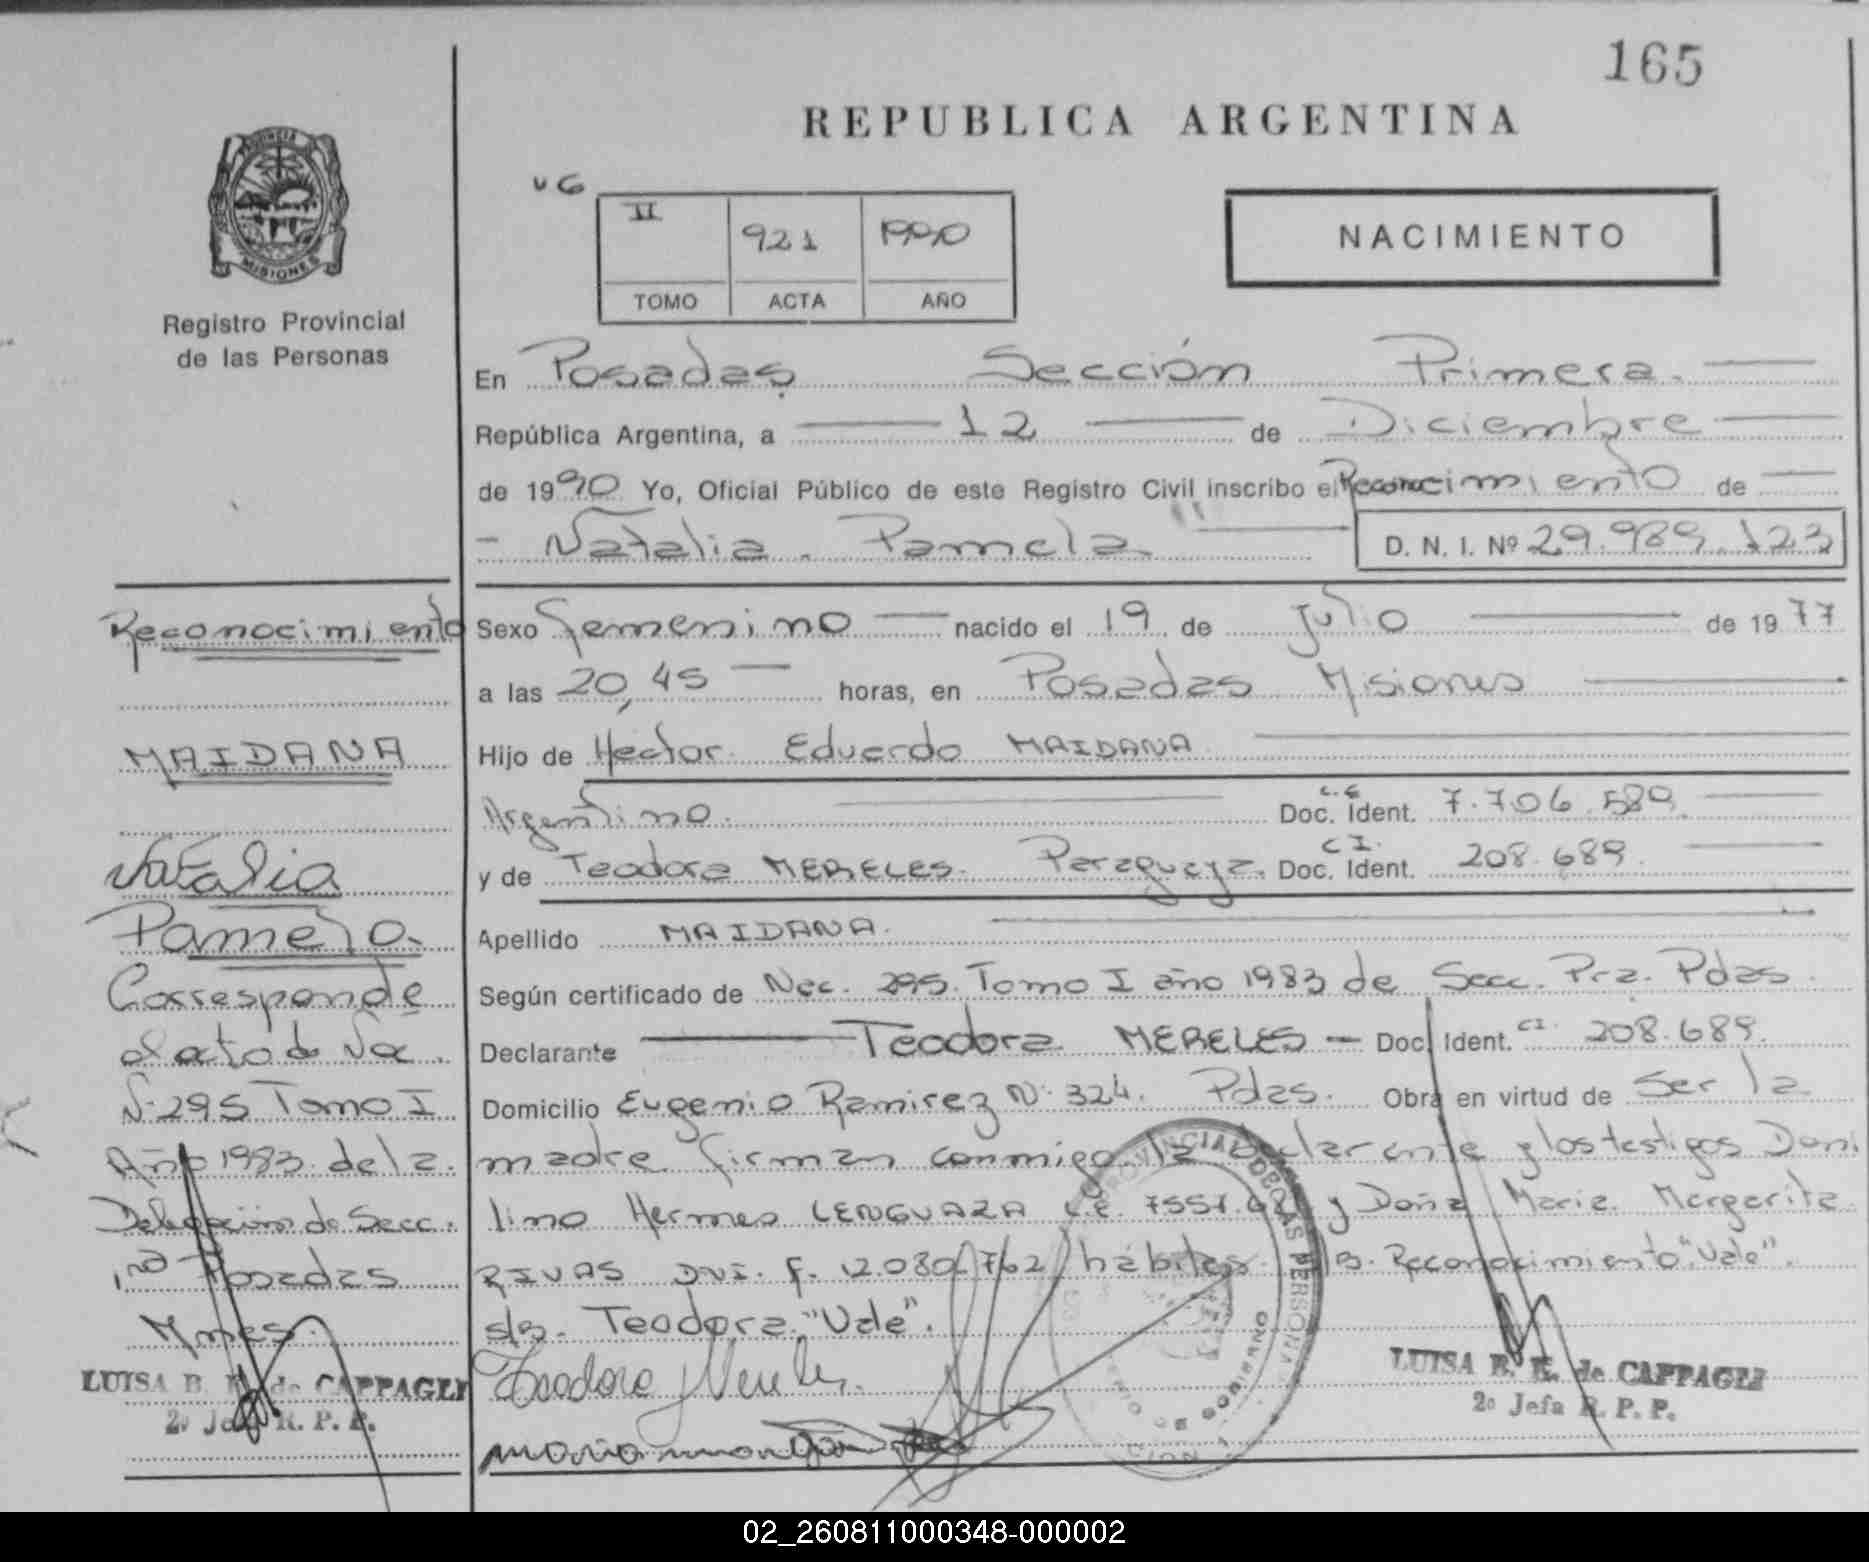 165
REPUBLICA ARGENTINA
PROVINCIA DE
MISIONES
Registro Provincial
de las Personas
II 921 1990
TOMO ACTA AÑO
NACIMIENTO
En Posadas Sección Primera.
República Argentina, a 12 de Diciembre
de 1990 Yo, Oficial Público de este Registro Civil inscribo el Reconocimiento de
Natalia Pamela D. N. I. Nº 29.989.123
Sexo femenino nacido el 19 de Julio de 1977
a las 20,45 horas, en Posadas Misiones
Hijo de Hector Eduardo MAIDANA
Argentino. Doc. Ident. L.E 7.706.589
y de Teodora MERELES. Paraguaya. Doc. Ident. C.I. 208.689.
Apellido MAIDANA.
Según certificado de Nac. 295. Tomo I año 1983 de Secc. Pra. Pdas.
Declarante Teodora MERELES — Doc. Ident. CI. 208.689.
Domicilio Eugenio Ramirez Nº 324. Pdas. Obra en virtud de Ser la
madre firman conmigo la declarante y los testigos Dani
lino Hermes LENGUAZA L.E. y Doña Maria Margarita
RIVAS DNI. F. 12.080.762 hábiles. S/B. Reconocimiento "Vale".
s/B. Teodora. "Vale".
Teodora Mereles.
LUISA B. de CAPPAGLI
2º Jefa R. P. P.
Reconocimiento
MAIDANA
Natalia
Pamela.
Corresponde
al acto de Nac.
Nº 295 Tomo I
Año 1983 de la
Delegación de Secc.
1ra Posadas
Mnes.
LUISA B. de CAPPAGLI
2º Jefa R. P. P.
02_260811000348-000002